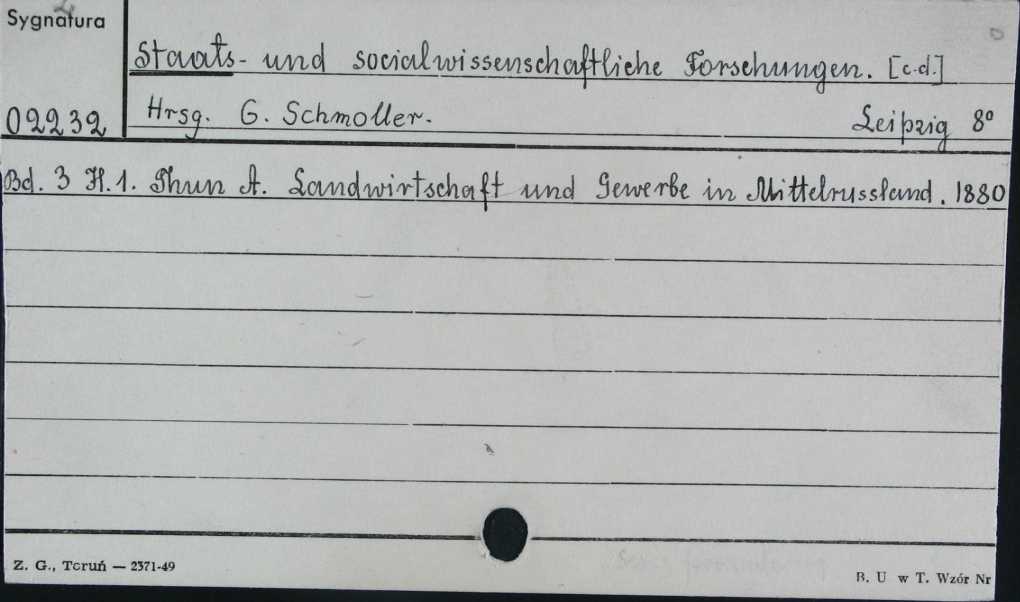 Sygnatura
Staats- und socialwissenschaftliche Forschungen. [c.d.]
02232 Hrsg. G. Schmoller. Leipzig 8°
Bd. 3 H.1. Thun A. Landwirtschaft und Gewerbe in Mittelrussland. 1880
Z. G., Toruń — 2371-49
B. U w T. Wzór Nr